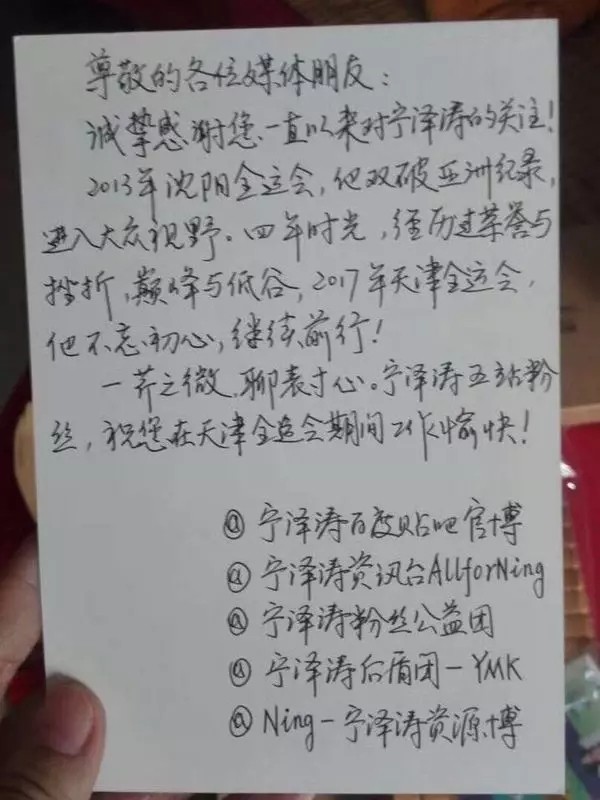 尊敬的各位媒体朋友：
诚挚感谢您一直以来对宁泽涛的关注！
2013年沈阳全运会，他双破亚洲纪录，
进入大众视野。四年时光，经历过荣誉与
挫折，巅峰与低谷，2017年天津全运会，
他不忘初心，继续前行！
一芥之微，聊表寸心。宁泽涛五站粉
丝，祝您在天津全运会期间工作愉快！
@宁泽涛百度贴吧官博
@宁泽涛资讯台AllforNing
@宁泽涛粉丝公益团
@宁泽涛后盾团-YMK
@Ning-宁泽涛资源博